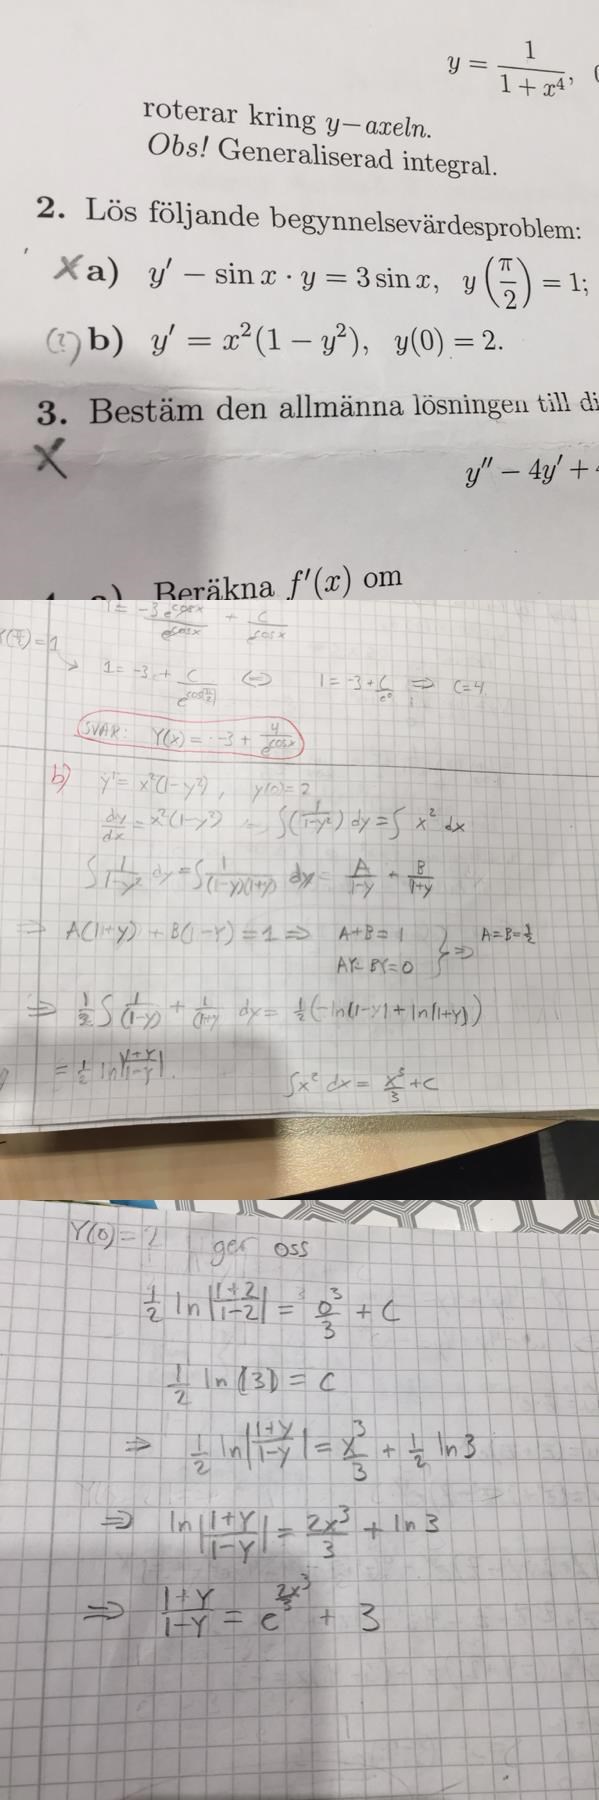 y = 1/(1 + x⁴),
roterar kring y−axeln.
Obs! Generaliserad integral.
2. Lös följande begynnelsevärdesproblem:
X a) y′ − sin x · y = 3 sin x, y(π/2) = 1;
(?) b) y′ = x²(1 − y²), y(0) = 2.
3. Bestäm den allmänna lösningen till di
X
y″ − 4y′ +
Beräkna f′(x) om
= 1
1 = -3 + C/e^cos(π/2) ⇔ 1 = -3 + C/e⁰ ⇒ C=4
SVAR: Y(x) = -3 + 4/e^cosx
b) y' = x²(1-y²), y(0)=2
dy/dx = x²(1-y²) ∫(1/(1-y²)) dy = ∫ x² dx
∫ 1/(1-y²) dy = ∫ 1/((1-y)(1+y)) dy = A/(1-y) + B/(1+y)
⇒ A(1+y) + B(1-Y) = 1 ⇒ A+B = 1 } ⇒ A=B=½
AY-BY=0
⇒ ½ ∫ 1/(1-y) + 1/(1+y) dy = ½ (-ln|1-y| + ln|1+y|)
= ½ ln|(1+y)/(1-y)|.
∫x² dx = x³/3 + C
Y(0) = 2 ger oss
½ ln|(1+2)/(1-2)| = 0³/3 + C
½ ln|3| = C
⇒ ½ ln|(1+Y)/(1-Y)| = x³/3 + ½ ln 3
⇒ ln|(1+Y)/(1-Y)| = 2x³/3 + ln 3
⇒ (1+Y)/(1-Y) = e^(2x³/3) + 3